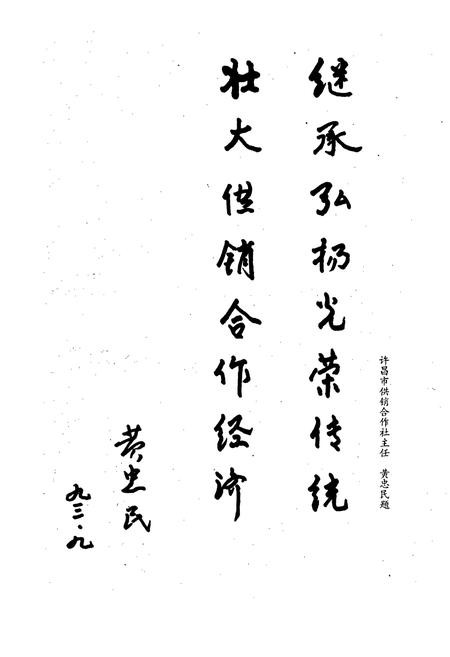 许昌市供销合作社主任 黄忠民题
继承弘扬光荣传统
壮大供销合作经济
黄忠民
九三·九